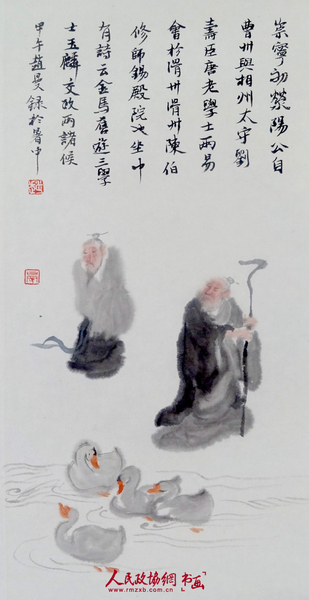 崇寧初滎陽公自
曹州與相州太守劉
壽臣唐老學士兩易
會於滑州滑州陳伯
修師錫殿院也坐中
有詩云金馬舊遊三學
士玉麟交政兩諸侯
甲午趙曼錄於暑中
人民政協網 书画
www.rmzxb.com.cn